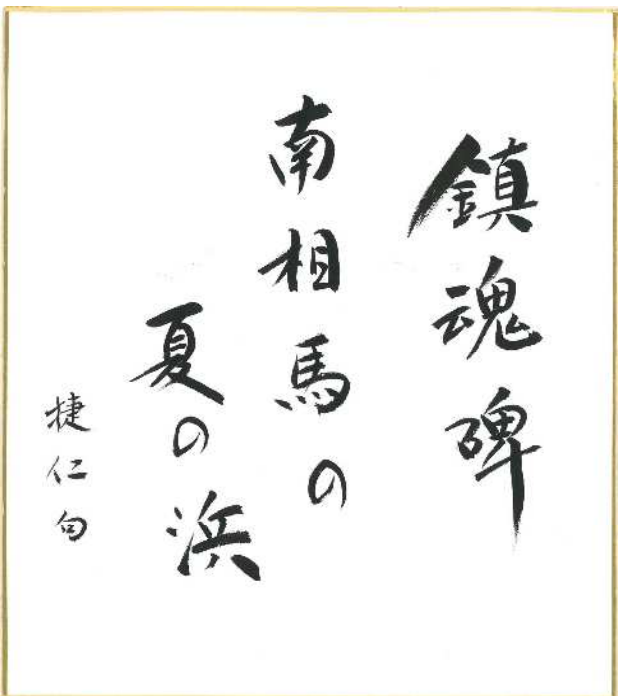 鎮魂碑
南相馬の
夏の浜
捷仁句